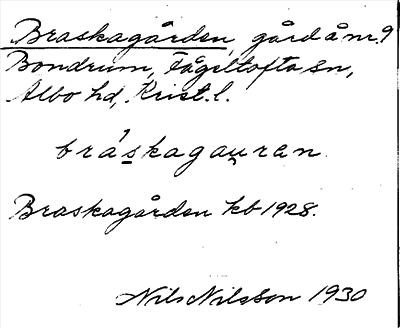 Braskagården, gård å nr. 9
Bondrum, Fågeltofta sn,
Albo hd, Krist. l.
bráskagau̯ran.
Braskagården kb 1928.
Nils Nilsson 1930